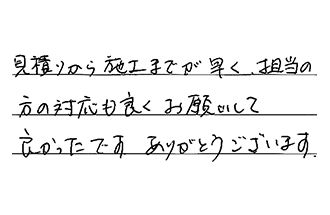 見積りから施工までが早く、担当の
方の対応も良くお願いして
良かったです ありがとうございます.